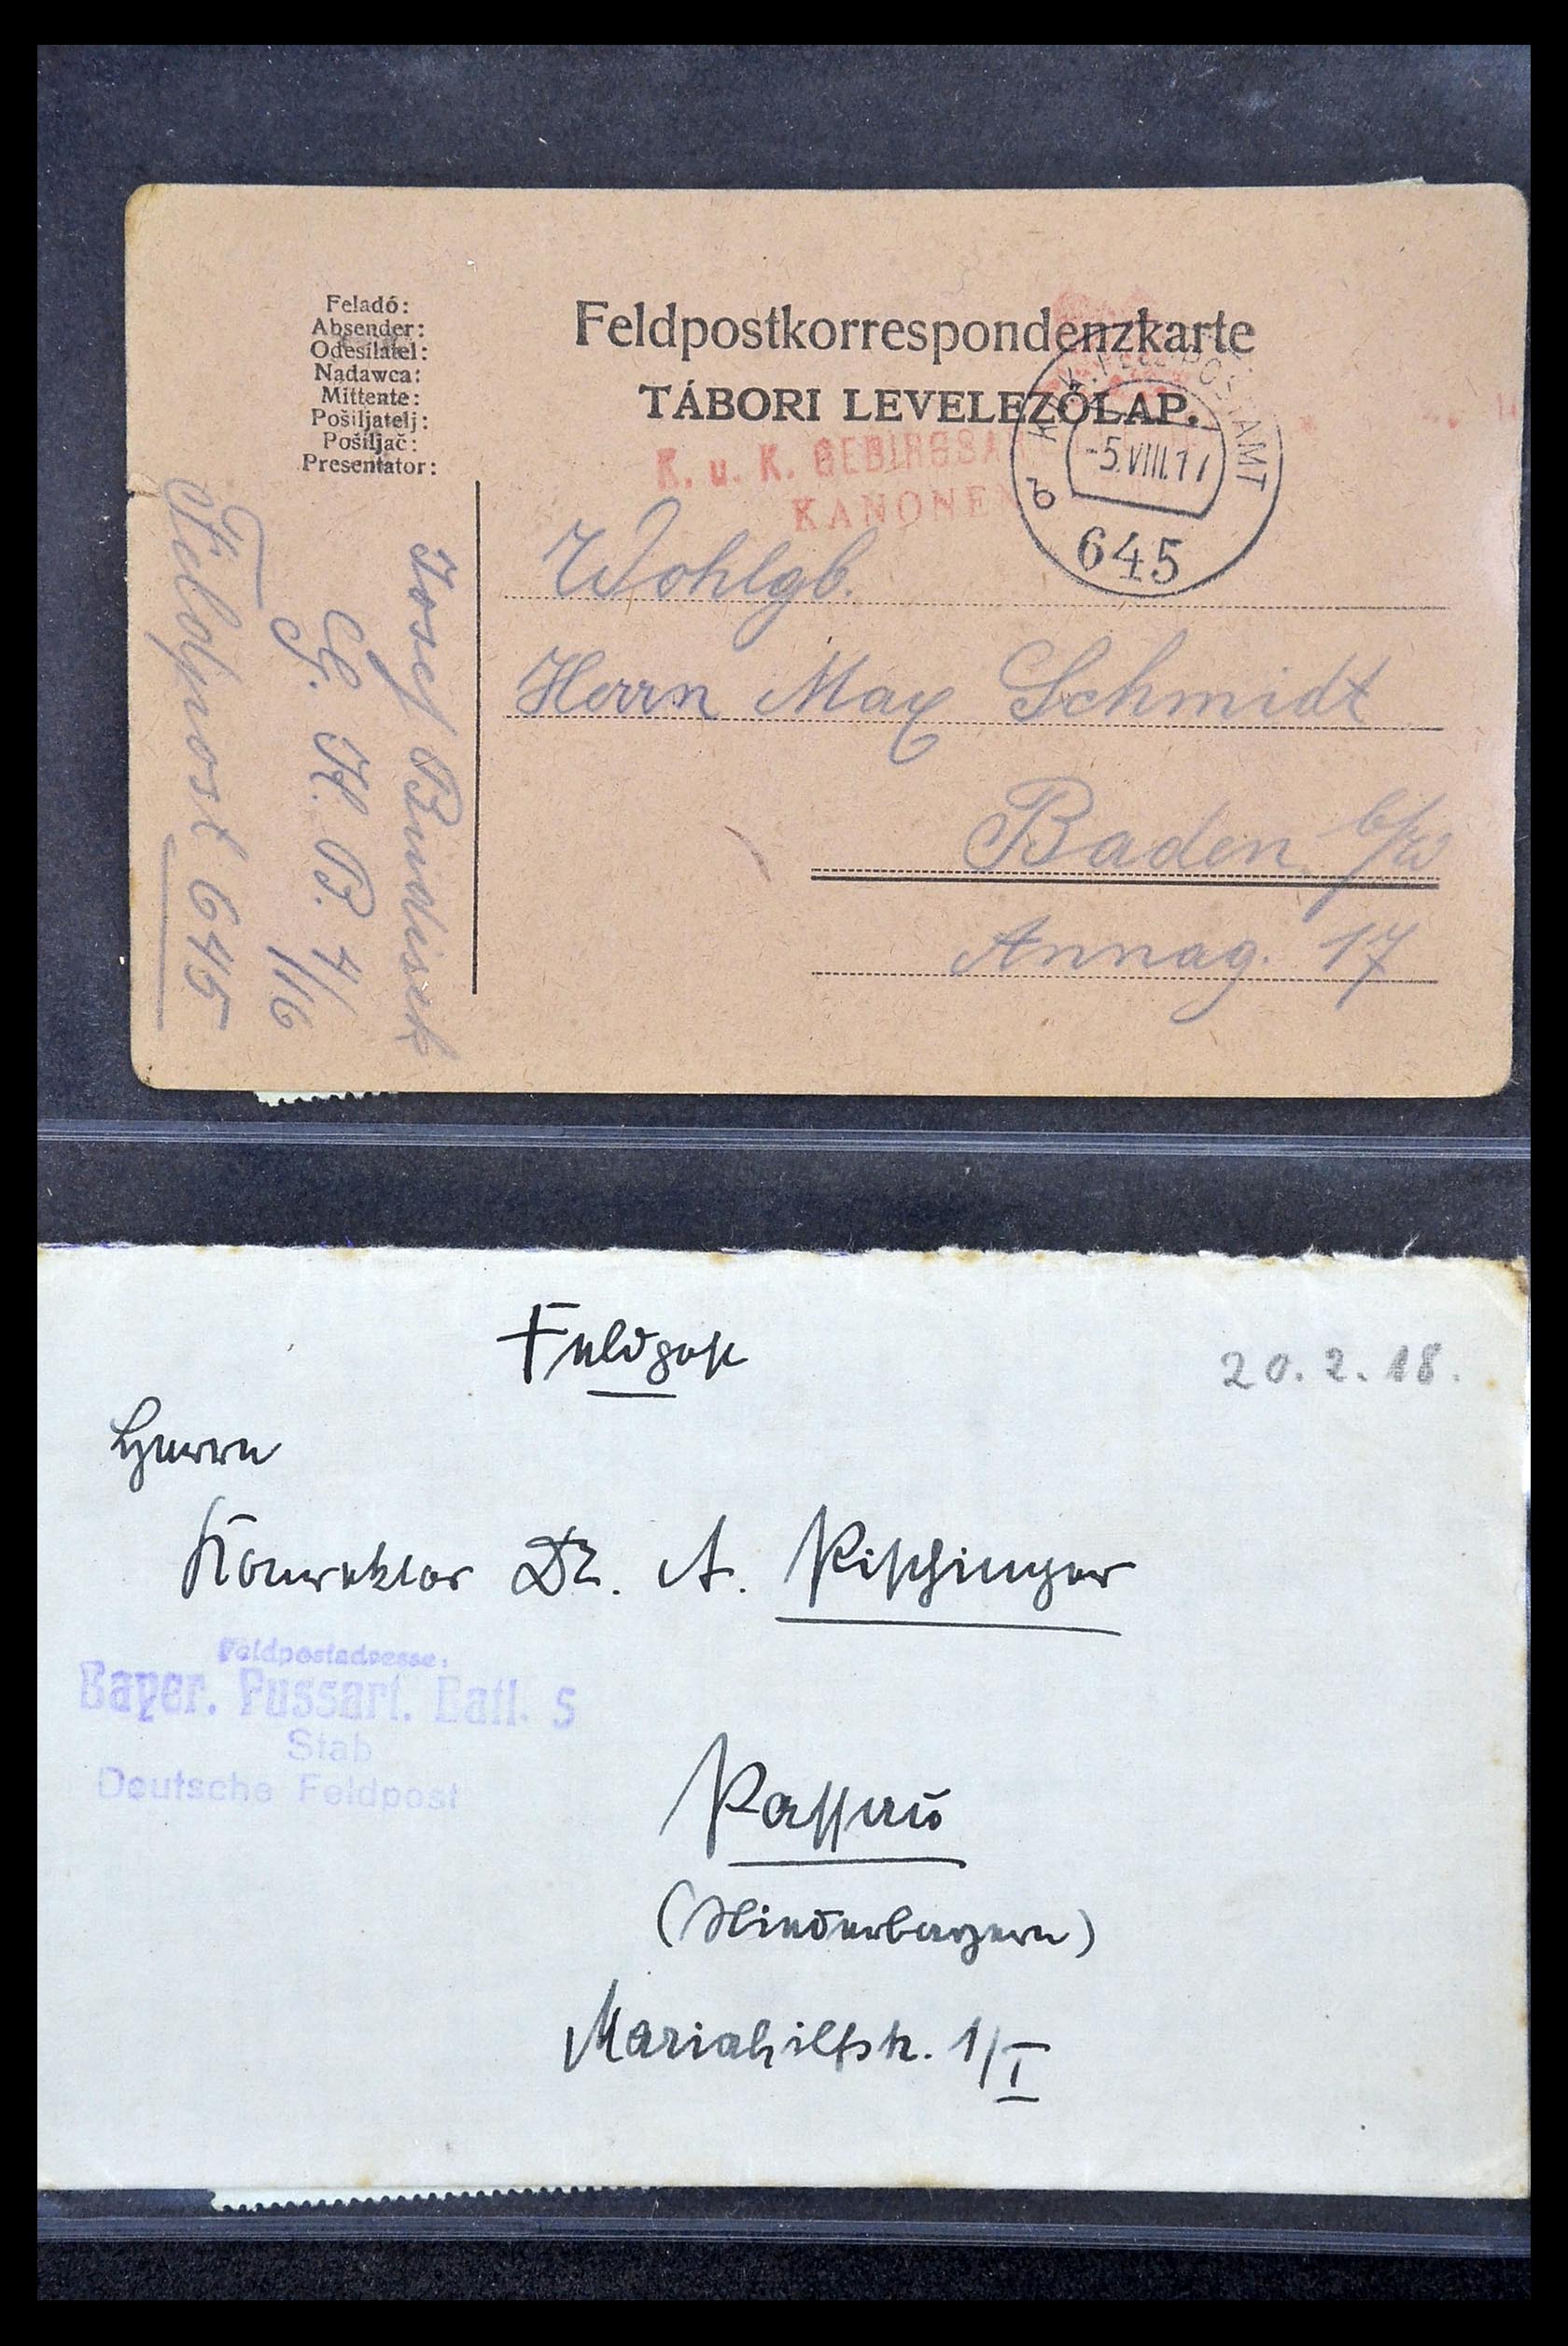 Feladó:
Absender:
Odesílatel:
Nadawca:
Mittente:
Pošiljatelj:
Pošiljač:
Presentator:
Feldpostkorrespondenzkarte
TÁBORI LEVELEZŐLAP.
K. u. K. GEBIRGSA
KANONEN
-5.VIII.17
b
645
Josef Budisek
G. K. B. 4/
1/16
Feldpost 645
Wohlgb.
Herrn Max Schmidt
Baden b/W
Annag. 17
Feldpost
20.2.18.
Herrn
Konrektor Dr. A. Pischinger
Feldpostadresse:
Bayer. Fussart. Batl. 5
Stab
Deutsche Feldpost
Passau
(Niederbayern)
Mariahilfstr. 1/I